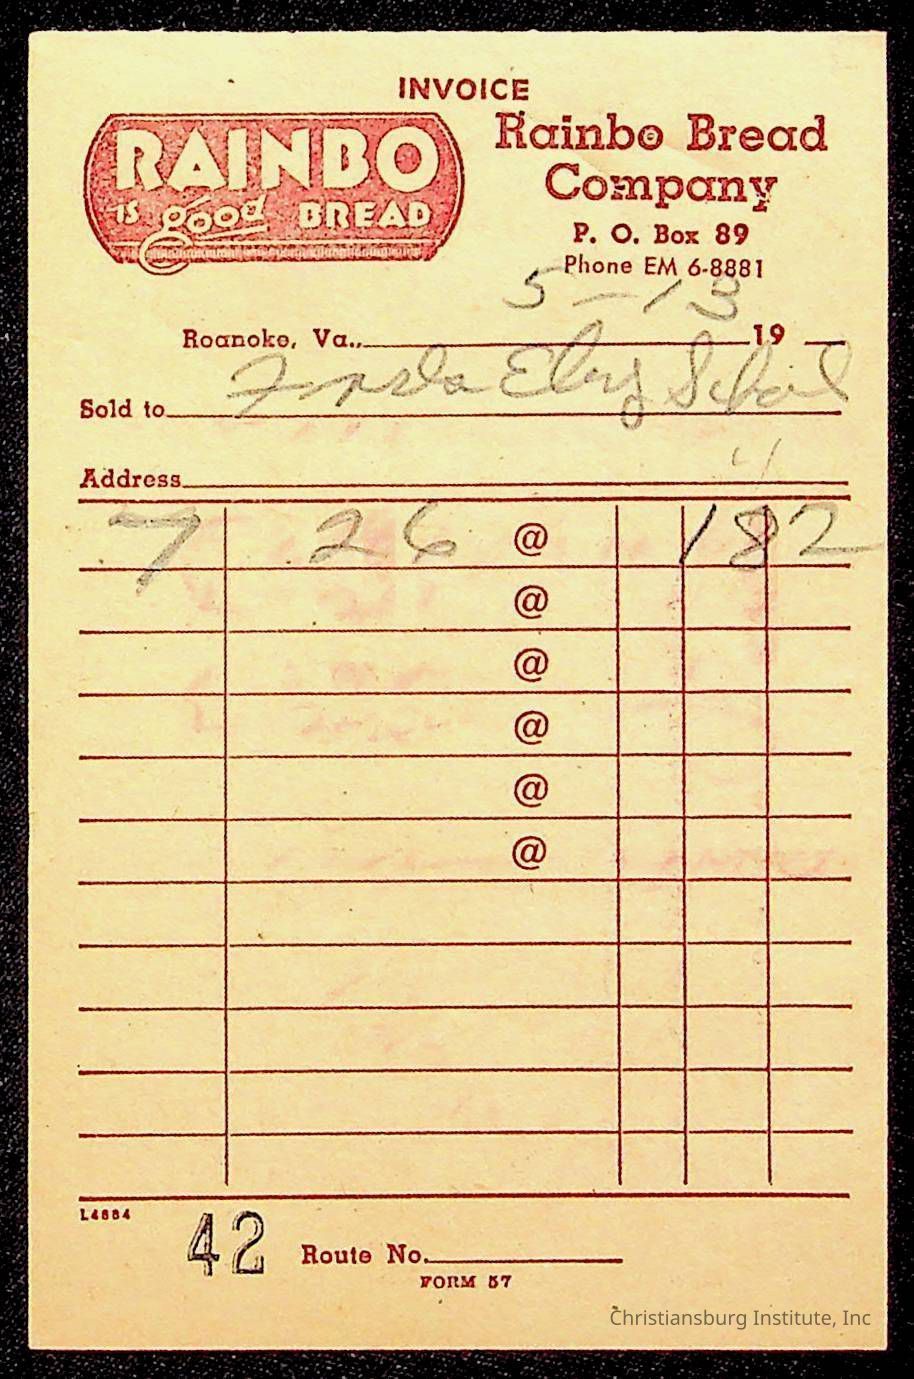 INVOICE
RAINBO
IS good BREAD
Rainbo Bread
Company
P. O. Box 89
Phone EM 6-8881
5-13
Roanoke, Va., 19
Sold to Eley School
Address "
7 26 @ 1 82
@
@
@
@
@
L4884
42 Route No.
FORM 57
Christiansburg Institute, Inc